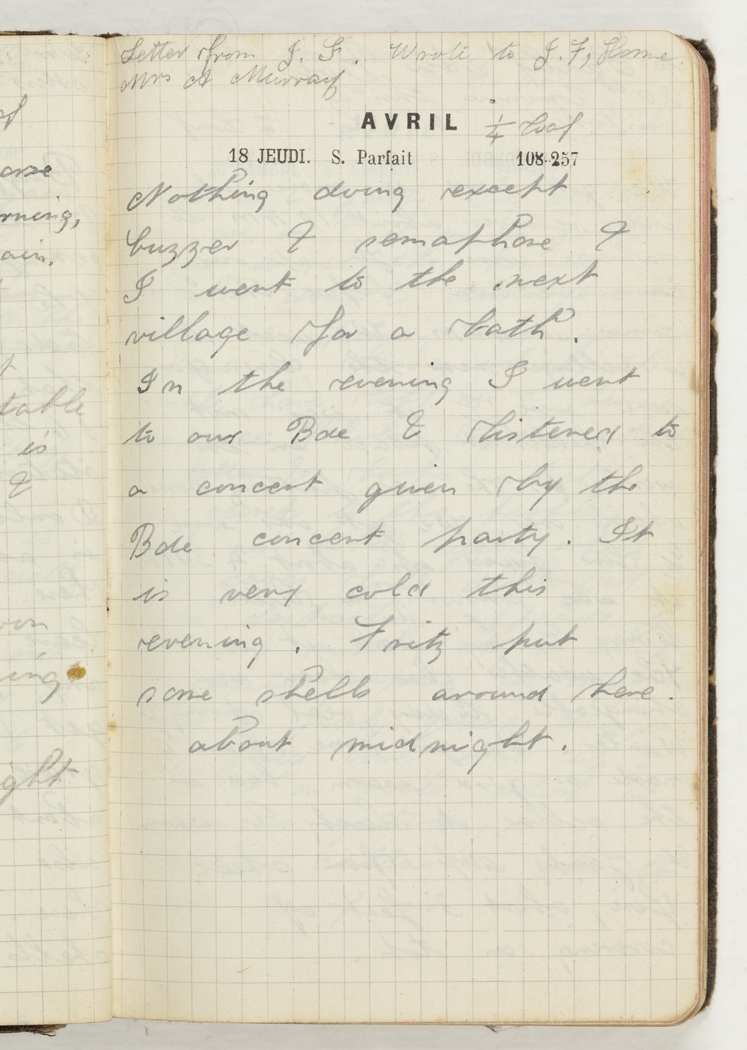 Letter from J. F. Wrote to J. F, Home
Mrs A Murray
AVRIL ¼ loaf
18 JEUDI. S. Parfait 108-257
Nothing doing except
buzzer & semaphore &
I went to the next
village for a bath.
In the evening I went
to our Bde & listened to
a concert given by the
Bde concert party. It
is very cold this
evening. Fritz put
some shells around here.
about midnight.
arse
rning,
ain.
table
is
&
ing
ght